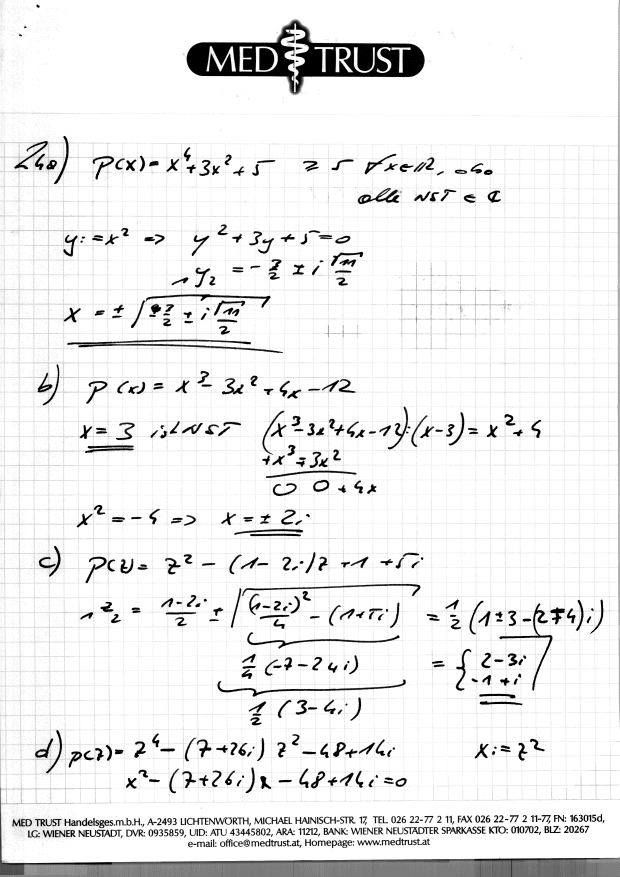 MED TRUST
24a) p(x) = x⁴ + 3x² + 5 ≥ 5 ∀x∈ℝ, also
alle NST ∈ ℂ
y := x² => y² + 3y + 5 = 0
₁y₂ = -3/2 ± i √11/2
x = ± √(-3/2 ± i √11/2)
b) p(x) = x³ - 3x² + 4x - 12
x = 3 ist NST (x³ - 3x² + 4x - 12) : (x - 3) = x² + 4
+x³ ∓ 3x²
0 0 + 4x
x² = -4 => x = ± 2i
c) p(z) = z² - (1 - 2i)z + 1 + 5i
₁z₂ = (1-2i)/2 ± √((1-2i)²/4 - (1+5i)) = 1/2 (1 ± 3 - (2 ∓ 4)i)
1/4 (-7 - 24i) = { 2 - 3i
-1 + i
1/2 (3 - 4i)
d) p(z) = z⁴ - (7 + 26i) z² - 48 + 14i x := z²
x² - (7 + 26i) x - 48 + 14i = 0
MED TRUST Handelsges.m.b.H., A-2493 LICHTENWORTH, MICHAEL HAINISCH-STR. 17, TEL. 026 22-77 2 11, FAX 026 22-77 2 11-77, FN: 163015d,
LG: WIENER NEUSTADT, DVR: 0935859, UID: ATU 43445802, ARA: 11212, BANK: WIENER NEUSTÄDTER SPARKASSE KTO: 010702, BLZ: 20267
e-mail: office@medtrust.at, Homepage: www.medtrust.at